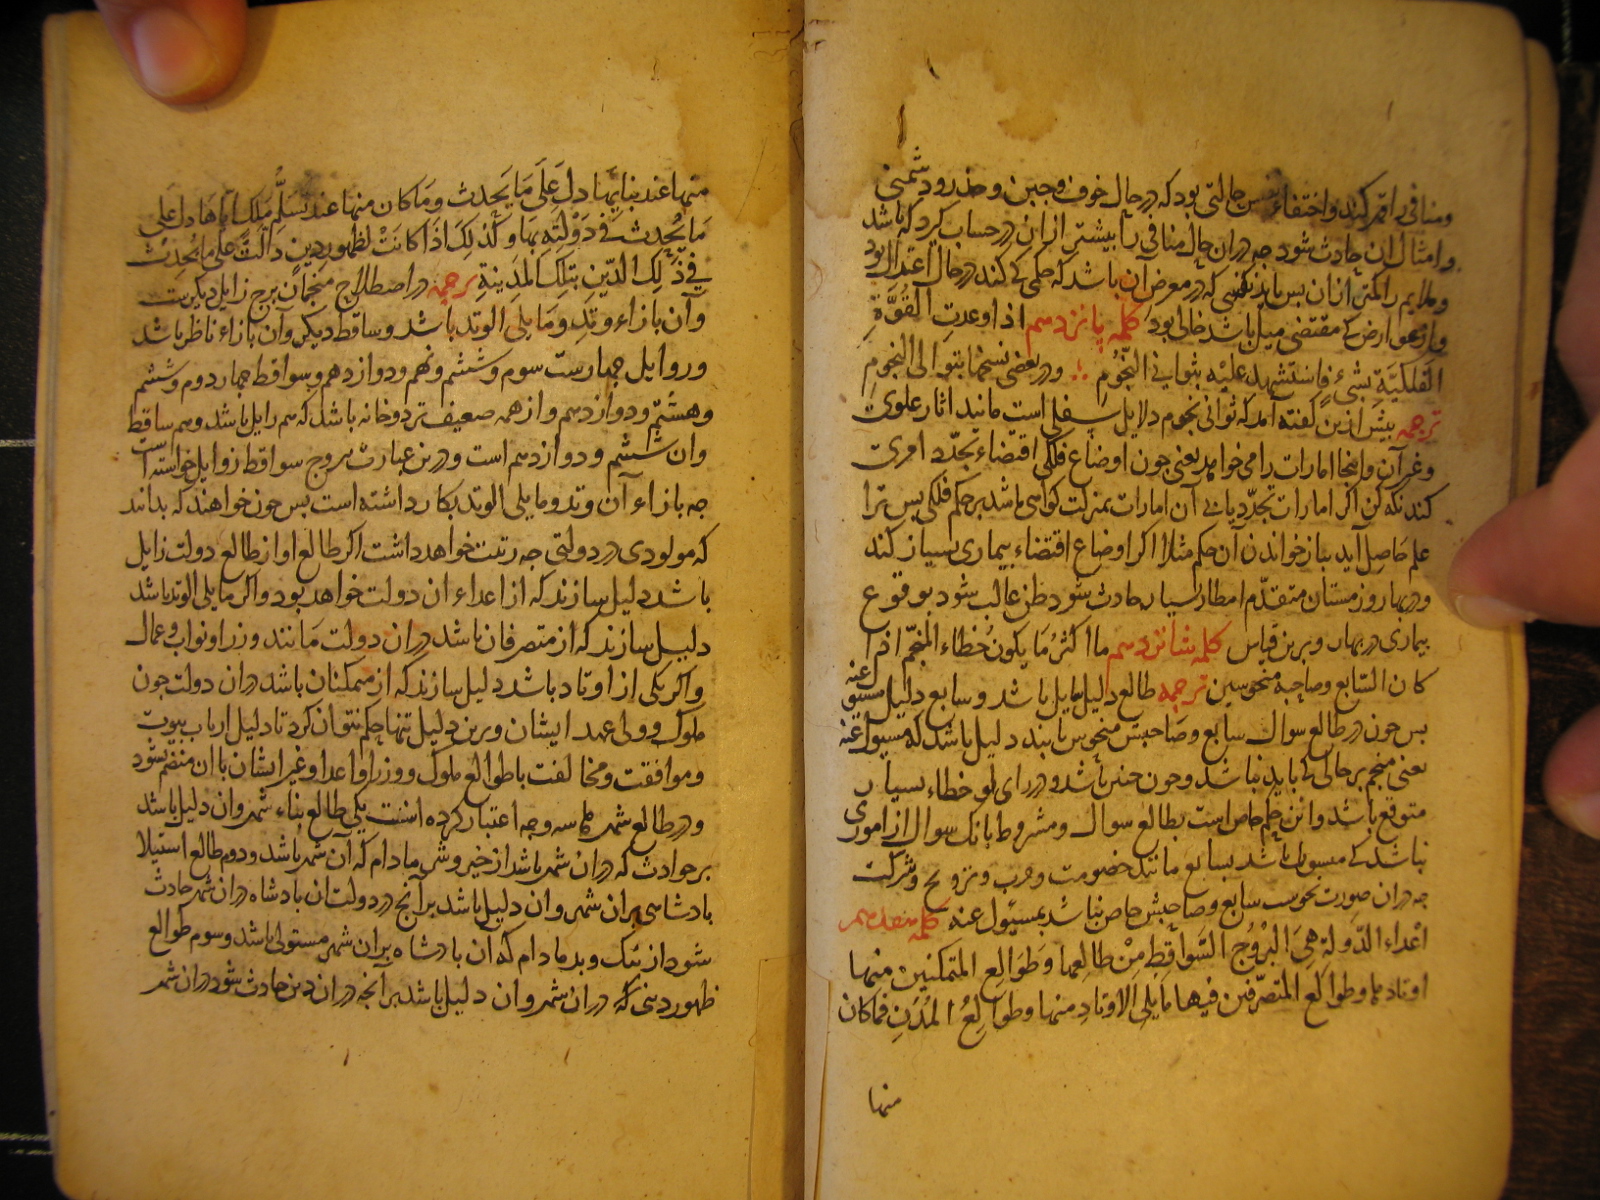 ومنافی را قهر کند و اختفاء نفس حالتی بود که در حال خوف و جبن و حذر و دشمنی
و امثال آن حادث شود چه در آن حال منافی را بیشتر از آن در حساب کیرد که باشد
و ملایم را کمتر از آن بس باید نفسی که در معرض آن باشد که حکمی کند در حال اعتدال بود
و از عوارض که مقتضی میل باشد خالی بود کلمه پانزدهم اذا وعدت القُوَّةِ
الفلکیَّةِ بشیءٍ فاسْتشهِد علیْه بثوانی النّجُومِ ؞ و در بعضی نسخها بتوالی النجوم
ترجمه پیش ازین کفته امد که ثوانی نجوم دلایل سفلی است مانند اثار علوی
و غیر آن و اینجا امارات را می خواهد یعنی چون اوضاع فلکی اقتضاء تجدّد امری
کند نکه کن اکر امارات تجدّد یابی آن امارات بمنزلت کواهی باشد بر حکم فلکی بس ترا
علم حاصل آید بباز خواندن آن حکم مثلا اکر اوضاع اقتضاء بیماری بسیار کند
و در بهار و زمستان متقدّم امطار بسیار حادث شود ظن غالب شود بوقوع
بیماری در بهار و برین قیاس کلمه شانزدهم ما اکثرُ مَا یکونُ خطاء المنجّم اذا
کان السّابع وصاحبه منحوسین ترجمه طالع دلیل سایل باشد و سابع دلیل مسئول عنه
بس چون در طالع سوال سابع و صاحبش منحوس یابند دلیل باشد که مسیول عنه
یعنی منجم بر حالی که باید نباشد و چون چنین باشد در رای او خطاء بسیار
متوقع باشد و این حکم خاص است بطالع سوال و مشروط بانک سوال از اموری
نباشد که منسوب باشد بسابع مانند خصومت و حرب و تزویج و شرکت
چه در ان صورت نحوست سابع و صاحبش خاص نباشد بمسئول عنه کلمه هفدهم
اعْداء الدّولة هِیَ البُرُوج السّواقِط مِنْ طالعها وَطَوَالِع المتمکنین منها
اوتادها وطوالع المتصرّفین فیها مایلی الاوتادِ منها وطوَالِعُ المُدُنِ فماکان
منها
منها عند بنایها دل عَلَی مَا یَحدث وَ مَا کان منها عند تسَلُّمِ مَلِک ایاها دل علی
مَا یُحدث فی دَوْلتِه بهَا وکذلِکَ اذا کانَتْ لظهور دین دالّت علی ما یُحدث
فی ذٰلِک الدّین بتلک المدینةِ ترجمه در اصطلاح منجمان برج زایل دیکرست
و آن بازاء وتد و ما یلی الوتد باشد و ساقط دیکر و آن بازاء ناظر باشد
و زوایل چهارست سوم و ششم و نهم و دوازدهم و سواقط چهار دوم و ششم
و هشتم و دوازدهم و از همه ضعیف تر دو خانه باشد که هم زایل باشد و هم ساقط
و ان ششم و دوازدهم است و درین عبارت بروج سواقط زوایل خواسته است
چه بازاء آن وتد و مایلی الوتد بکار داشته است بس چون خواهند که بدانند
که مولودی در دولتی چه رتبت خواهد داشت اکر طالع او از طالع دولت زایل
باشد دلیل سازند که از اعداء ان دولت خواهد بود و اکر مایلی الوتد باشد
دلیل سازند که از متصرفان باشد در ان دولت مانند وزرا و نواب و عمال
و اکر یکی از اوتاد باشد دلیل سازند که از متمکنان باشد در ان دولت چون
ملوک و ولی عهد ایشان و برین دلیل تنها حکم نتوان کرد تا دلیل ارباب بیوت
و موافقت و مخالفت با طوالع ملوک و وزرا و اعدا و غیر ایشان با ان منضم نشود
و در طالع شهرها سه وجه اعتبار کرده است یکی طالع بناء شهر و ان دلیل باشد
بر حوادث که در ان شهر باشد از خیر و شر مادام که آن شهر باشد و دوم طالع استیلا
بادشاهی بران شهر و ان دلیل باشد بر آنچ در دولت ان بادشاه در ان شهر حادث
شود از نیک و بد مادام که ان بادشاه بران شهر مستولی باشد و سوم طوالع
ظهور دینی که در ان شهر و ان دلیل باشد بر آنچه در ان دین حادث شود در ان شهر